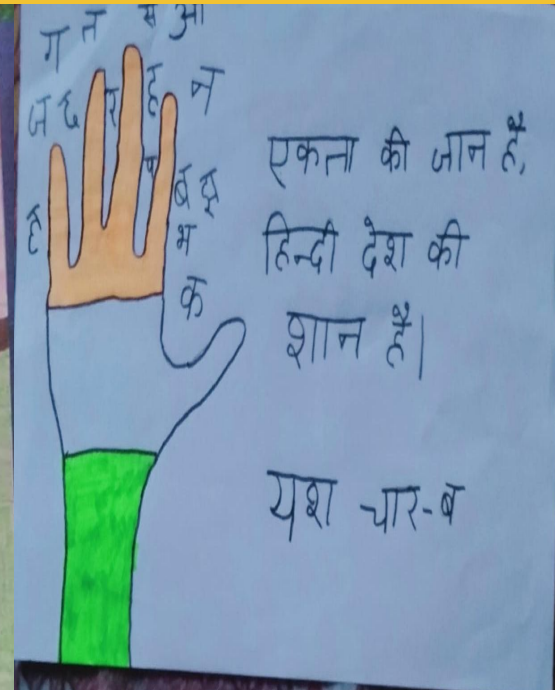 ग त म आ
ज छ र ह न
ष ब
है भ
क
एकता की जान है,
हिन्दी देश की
शान है।
यश चार-ब